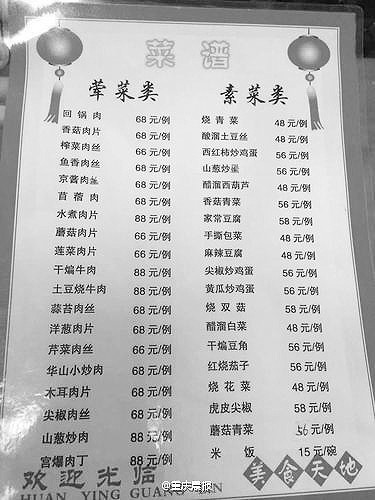 菜谱
荤菜类
回锅肉 68元/例
香菇肉片 68元/例
榨菜肉丝 66元/例
鱼香肉丝 68元/例
京酱肉丝 68元/例
苜蓿肉 68元/例
水煮肉片 88元/例
蘑菇肉片 66元/例
莲菜肉片 66元/例
干煸牛肉 88元/例
土豆烧牛肉 88元/例
蒜苔肉丝 68元/例
洋葱肉片 68元/例
芹菜肉丝 66元/例
华山小炒肉 68元/例
木耳肉片 68元/例
尖椒肉丝 68元/例
山葱炒肉 88元/例
宫爆肉丁 88元/例
素菜类
烧青菜 48元/例
酸溜土豆丝 48元/例
西红柿炒鸡蛋 56元/例
山葱炒蛋 56元/例
醋溜西葫芦 48元/例
香菇青菜 56元/例
家常豆腐 58元/例
手撕包菜 48元/例
麻辣豆腐 48元/例
尖椒炒鸡蛋 56元/例
黄瓜炒鸡蛋 56元/例
烧双菇 58元/例
醋溜白菜 48元/例
干煸豆角 56元/例
红烧茄子 56元/例
烧花菜 48元/例
虎皮尖椒 58元/例
蘑菇青菜 56元/例
米饭 15元/碗
欢迎光临
HUAN YING GUANG LIN
美食天地
@重庆晨报